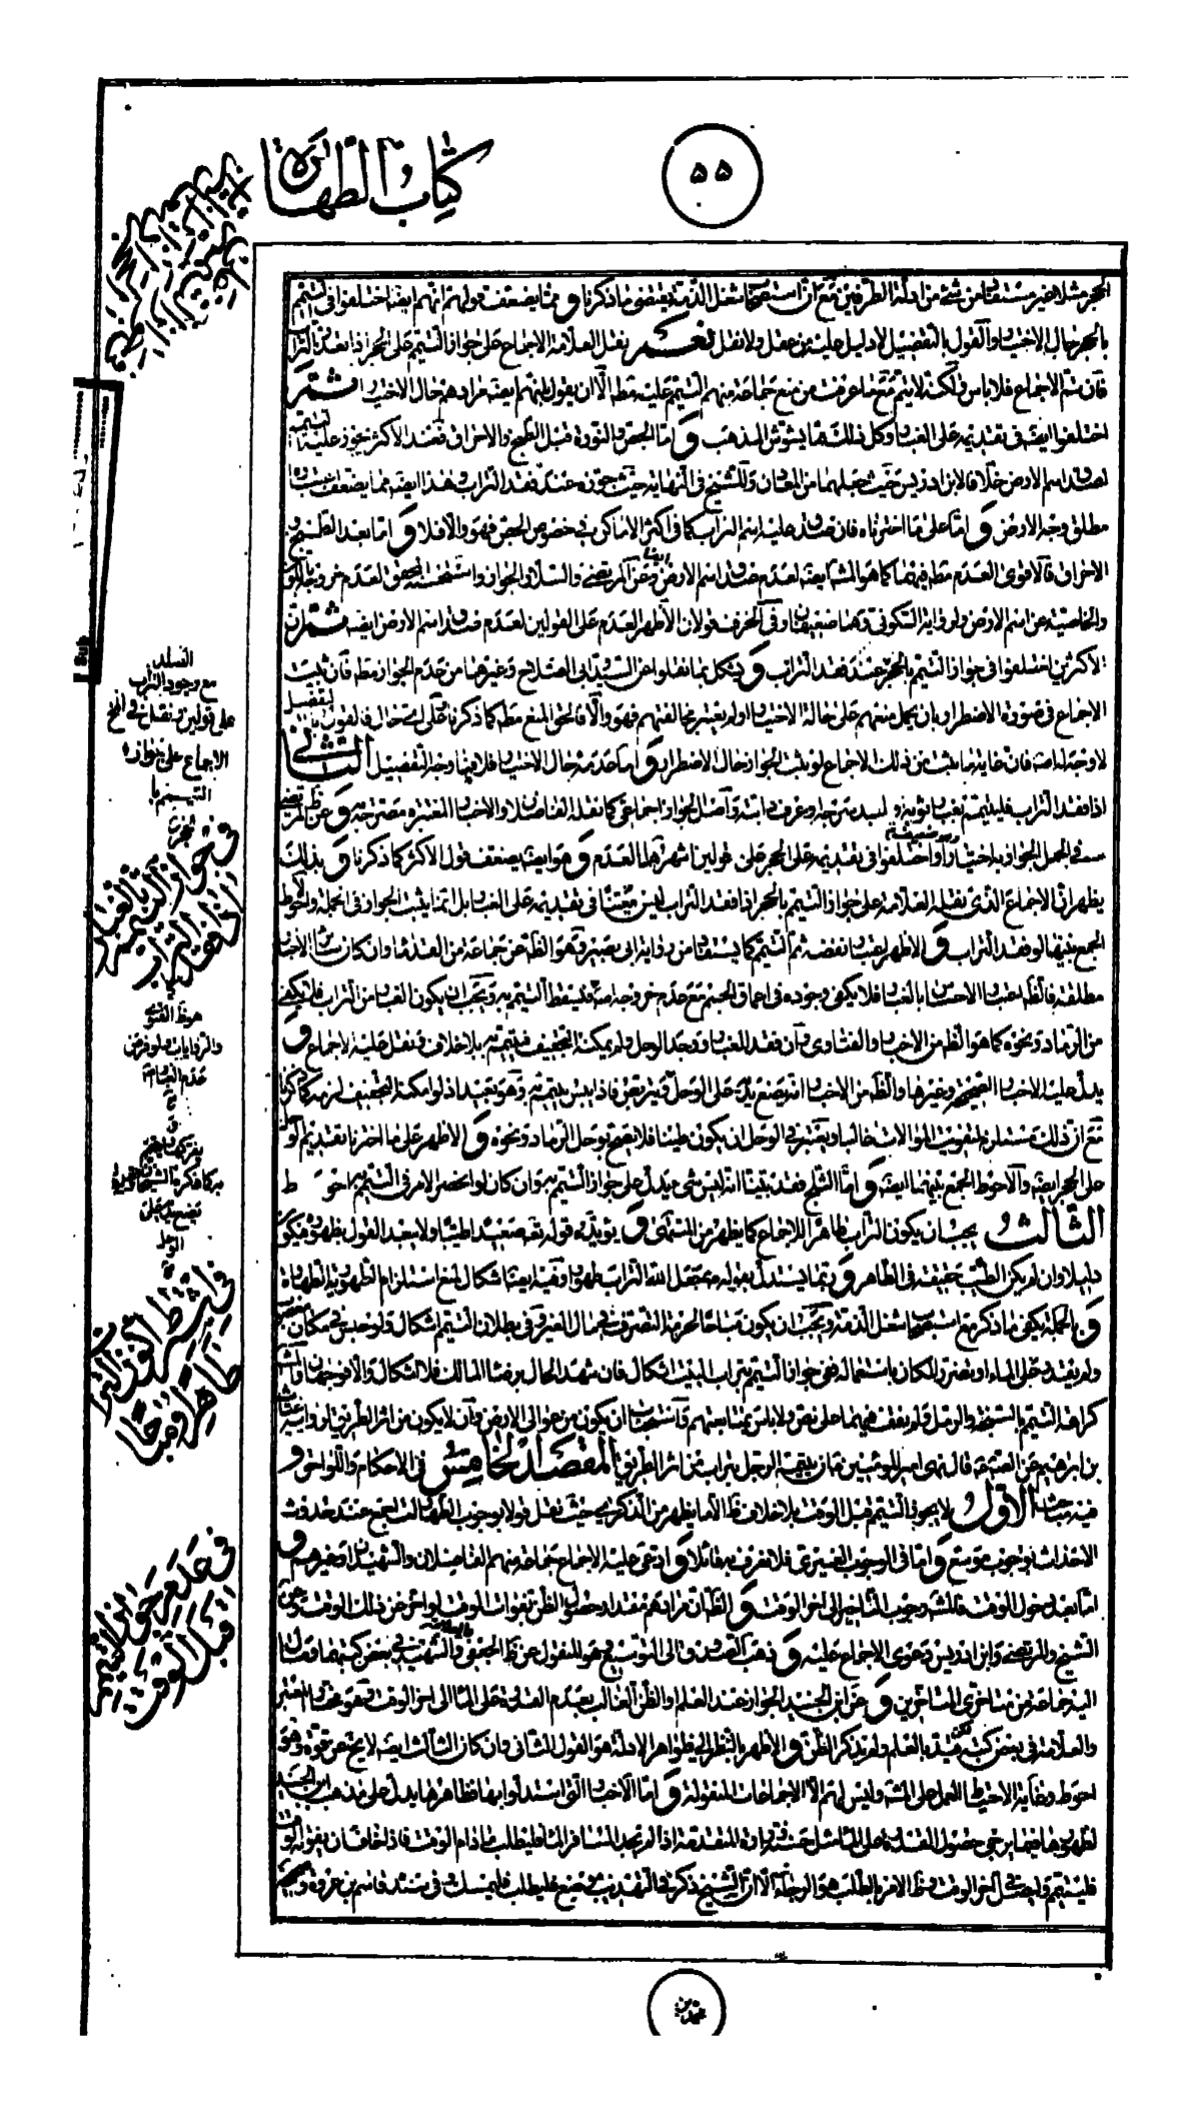 كتاب الطهارة
٥٥
الحجر مثلا غير مستفاد من شيء من ادلة الطرفين مع ان استصحاب شغل الذمة يقتضى ما ذكرنا و مما يضعف قولهم انهم ايضا اختلفوا فى التيمم
بالحجر حال الاختيار و القول بالتفصيل لا دليل عليه من عقل ولا نقل نعم نقل العلامة الاجماع على جواز التيمم على الحجر اذا فقد التراب
فان تم الاجماع فلا باس و لكنه لا يتم مع ما عرفت من منع جماعة منهم التيمم عليه مط الا ان يقول انهم ايضه مرادهم حال الاختيار ثم
اختلفوا ايضه فى تقديمه على الغبار و كل ذلك مما يشوش المذهب و اما الجص و النورة قبل الطبخ و الاحراق فعند الاكثر يجوز عليه التيمم
لصدق اسم الارض خلافا لابن ادريس حيث جعلهما من المعادن و للشيخ فى النهاية حيث جوزه عند فقد التراب و هذا ايضه مما يضعف
مطلق وجه الارض و اما على ما اخترناه فان صدق عليه اسم التراب كما فى اكثر الاماكن فى خصوص الجص فهو و الا فلا و اما بعد الطبخ و
الاحراق فالاقوى العدم مط فيهما كما هو المش ايضه لعدم صدق اسم الارض و عن المرتضى و السلار الجواز و استحسنه المحقق لعدم خروجه باللون
و الخاصية عن اسم الارض و لرواية السكونى و هما ضعيفان و فى الخزف قولان الاظهر العدم على القولين لعدم صدق اسم الارض ايضه ثم ان
الاكثرين اختلفوا فى جواز التيمم بالحجر عند فقد التراب و يشكل بما نقلوا عن السيد و ابى الصلاح و غيرهما من عدم الجواز مط فان ثبت
الاجماع فى صورة الاضطرار بان يحمل منعهم على حالة الاختيار او لم يعتبر مخالفتهم فهو و الا فالحق المنع مط كما ذكرنا و على اى حال فالقول بالتفصيل
لا وجه له اصلا فان غاية ما يثبت من ذلك الاجماع لو ثبت الجواز حال الاضطرار و اما عدمه حال الاختيار فلا فما وجه التفصيل الثانى
اذا فقد التراب فليتيمم بغبار ثوبه و لبد سرجه و عرف دابته و اصل الجواز اجماعى كما نقله الفاضلان و الاخبار المعتبرة مصرحة به و عن ظ المرتضى
فى الجمل الجواز به اختيارا و اختلفوا فى تقديمه على الحجر على قولين اشهرهما العدم و هو ايضه يضعف قول الاكثر كما ذكرنا و بذلك
يظهر ان الاجماع الذى نقله العلامة على جواز التيمم بالحجر اذا فقد التراب ليس معينا فى تقديمه على الغبار بل انما يثبت الجواز فى الجملة و الاحوط
الجمع بينهما لو فقد التراب و الاظهر اعتبار نفضه ثم التيمم كما يستفاد من رواية ابى بصير و هو الظ عن جماعة من العلماء و ان كان سائر الاخبار
مطلقة فالظ اعتبار الاحساس بالغبار فلا يكفى وجوده فى اعماق الجسم مع عدم خروجه منه فليسقط التيمم به و يجب ان يكون الغبار من التراب فلا يكفى
من الرماد و نحوه كما هو الظ من الاخبار و الفتاوى و ان فقد الغبار و وجد الوحل و لم يمكنه التجفيف فيتيمم به بلا خلاف و نقل عليه الاجماع و
يدل عليه الاخبار الصحيحة و غيرها و الظ من الاخبار انه يضع يده على الوحل و يتربص فاذا يبس يتيمم به و هو بعيد اذ لو امكنه التجفيف لزمه كما ذكرنا
مع ان ذلك مستلزم لتفويت الموالات غالبا و يعتبر فى الوحل ان يكون طينا فلا يصح بوحل الرماد و نحوه و الاظهر على ما اخترنا تقديم الوحل
على الحجر ايضه و الاحوط الجمع بينهما ايضه و اما الثلج فقد بينا انه ليس شيء يدل على جواز التيمم به و ان كان لو انحصر الامر فى التيمم به احوط
الثالث يجب ان يكون التراب طاهرا للاجماع كما يظهر من المنتهى و يؤيده قوله تعه صعيدا طيبا و لا يبعد القول بظهوره فيكون
دليلا و ان لم يكن الطيب حقيقة فى الطاهر و ربما يستدل بقوله جعل الله التراب طهورا و فيه ايضا اشكال لمنع استلزام الطهورية الطهارة
و بالجملة يكفى ما ذكر مع استصحاب شغل الذمة و يجب ان يكون مباحا لحرمة التصرف فى مال الغير و فى بطلان التيمم اشكال و لو حبس فى مكان مغصوب
و لم يقدر على الماء او يضر المكان باستعماله ففى جواز التيمم بتراب البيت اشكال فان شهد الحال برضا المالك فلا اشكال و الا فوجهان و المش
كراهة التيمم بالسبخة و الرمل و لم يقف فيهما على نص و لا باس بمتابعتهم و استحباب ان يكون من عوالى الارض و ان لا يكون من اثر الطريق لرواية غياث
بن ابرهيم عن الصه قال نهى امير المؤمنين ان يتيمم الرجل بتراب من اثر الطريق المقصد الخامس فى الاحكام و اللواحق و
فيه مباحث الاول لا يجوز التيمم قبل الوقت بلا خلاف ظ الا ما يظهر من الذكرى حيث نقل قولا بوجوب الطهارات اجمع عند حدوث
الاحداث لوجوب موسع و اما فى الوجوب الغيرى فلا نعرف به قائلا و ادعى عليه الاجماع جماعة منهم الفاضلان و الشهيدان و غيرهم و
اما بعد دخول الوقت فالمش وجوب التاخير الى اخر الوقت و الظ ان مرادهم مقدار حصول الظن بفوات الوقت لو اخر عن ذلك الوقت و عن
الشيخ و المرتضى و ابن ادريس دعوى الاجماع عليه و ذهب الصدوق الى التوسيع و هو المنقول عن ظ الجعفى و الشهيد فى بعض كتبهما و مال
اليه جماعة من متاخرى المتاخرين و عن ابن الجنيد الجواز عند العلم و الظن الغالب بعدم القدرة على الماء الى اخر الوقت و هو مختار المعتبر
و العلامة فى بعض كتبه لكن قيده بالعلم و لم يذكر الظن و الاظهر بالنظر الى ظواهر الادلة هو القول الثانى و ان كان الثالث ايضه لا يخ عن قوة و هو
احوط و غاية الاحتياط العمل على المش و ليس لهم الا الاجماعات المنقولة و اما الاخبار التى استدلوا بها فظاهرها يدل على مذهب ابن الجنيد
لظهورها فيما يرجى حصول القدرة على الماء مثل حسنة زرارة المتقدمة اذا لم يجد المسافر الماء فليطلب ما دام الوقت فاذا خاف ان يفوته الوقت
فليتيمم و ليصل فى اخر الوقت و ظ الامر بالطلب هو الرجاء الا ان الشيخ ذكر فى التهذيب فى موضع فليطلب فليمسك و فى سنده قاسم بن عروة
مع وجود التراب
على قولين و نقل فى المخ
الاجماع على جوازه
التيمم با
لحجر
فى جواز التيمم بالغبار
اذا فقد التراب
هو ظ الفتوى
و الروايات فلو فرض
عدم الغبار
يضع يديه على
الوحل
فى اشتراط كون التراب
طاهرا و مباحا
فى عدم جواز التيمم
قبل الوقت